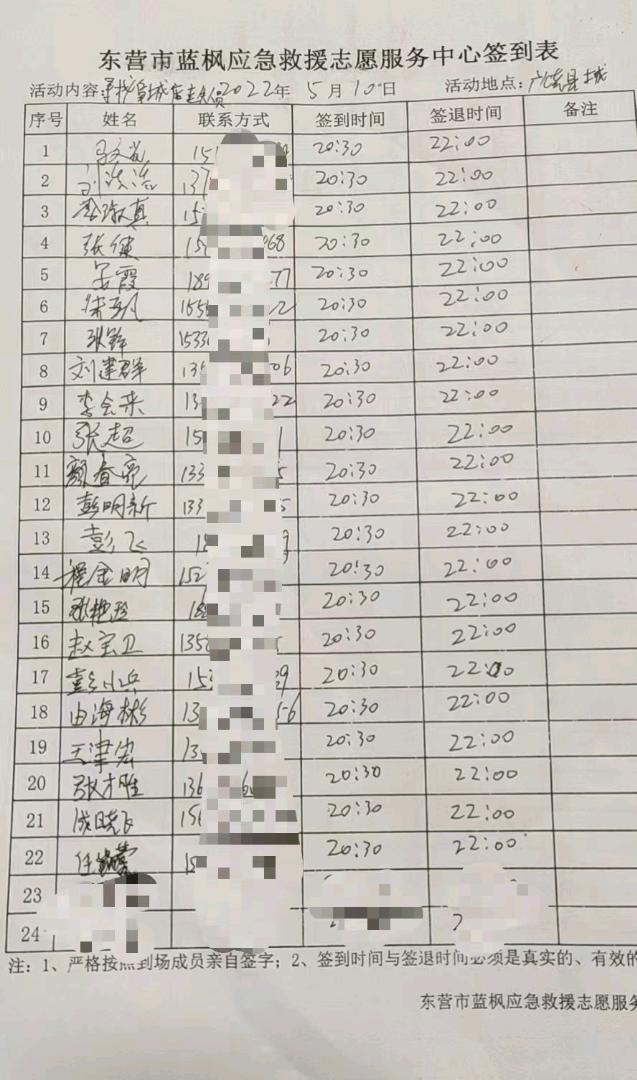 东营市蓝枫应急救援志愿服务中心签到表
活动内容:寻找 城 走失人员 2022年 5月10日 活动地点:广饶县城
序号 姓名 联系方式 签到时间 签退时间 备注
1 15 20:30 22:00
2 刘浩浩 137 20:30 22:00
3 真 15 20:30 22:00
4 张健 15 068 20:30 22:00
5 霞 189 77 20:30 22:00
6 155 2 20:30 22:00
7 1533 20:30 22:00
8 刘建群 135 06 20:30 22:00
9 李会来 13 22 20:30 22:00
10 张超 15 1 20:30 22:00
11 颜春亮 133 5 20:30 22:00
12 彭明新 133 5 20:30 22:00
13 彭飞 1 9 20:30 22:00
14 程金明 152 20:30 22:00
15 张艳玲 18 20:30 22:00
16 赵宝卫 1356 5 20:30 22:00
17 彭小兵 15 29 20:30 22:00
18 由海彬 13 56 20:30 22:00
19 13 20:30 22:00
20 张才胜 136 6 20:30 22:00
21 成晓飞 156 20:30 22:00
22 任 15 20:30 22:00
23
24
注:1、严格按照到场成员亲自签字;2、签到时间与签退时间必须是真实的、有效的
东营市蓝枫应急救援志愿服务